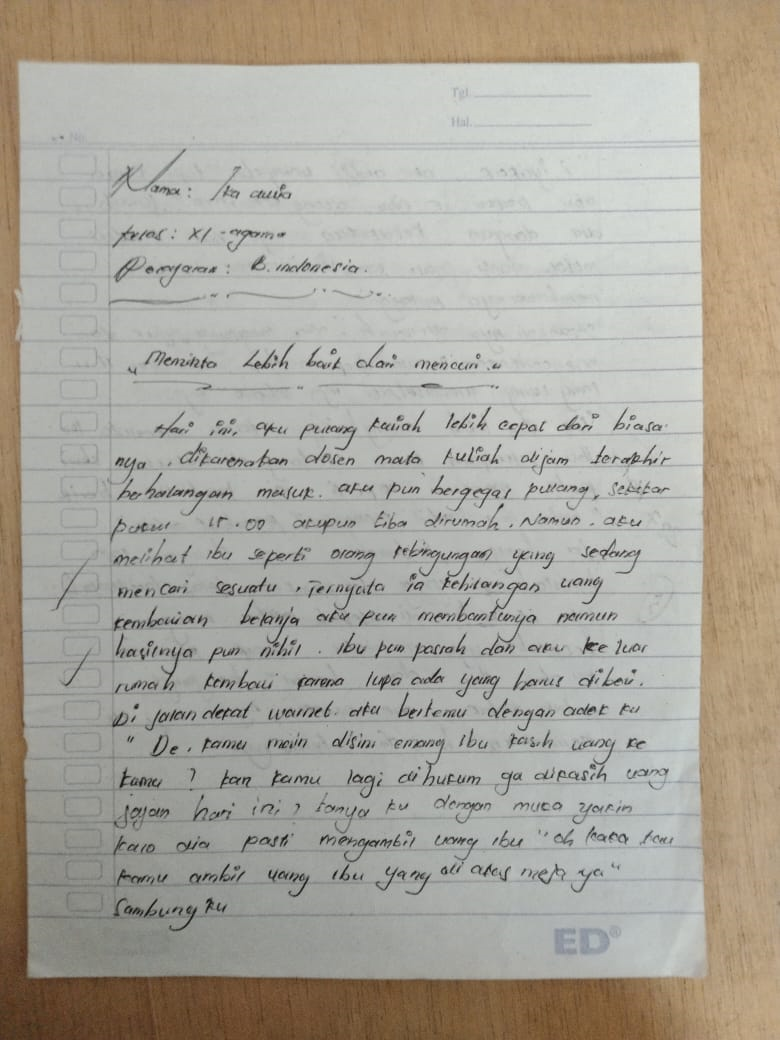 Tgl.
Hal.
No
Nama : Ika aulia
Kelas : XI - agama
Pelajaran : B. indonesia.
"Meminta Lebih baik dari mencuri."
Hari ini, aku pulang kuliah lebih cepat dari biasa
nya. dikarenakan dosen mata kuliah dijam terakhir
berhalangan masuk. aku pun bergegas pulang, sekitar
pukul 15.00 akupun tiba dirumah. Namun. aku
melihat ibu seperti orang kebingungan yang sedang
mencari sesuatu. Ternyata ia kehilangan uang
kembalian belanja aku pun membantunya namun
hasilnya pun nihil. ibu pun pasrah dan aku keluar
rumah kembali karena lupa ada yang harus dibeli.
Di jalan dekat warnet. aku bertemu dengan adek ku
" De, kamu main disini emang ibu kasih uang ke
kamu ? kan kamu lagi dihukum ga dikasih uang
jajan hari ini ? tanya ku dengan muka yakin
kalo dia pasti mengambil uang ibu "oh kaka tau
kamu ambil uang ibu yang di atas meja ya"
Sambung ku
ED®